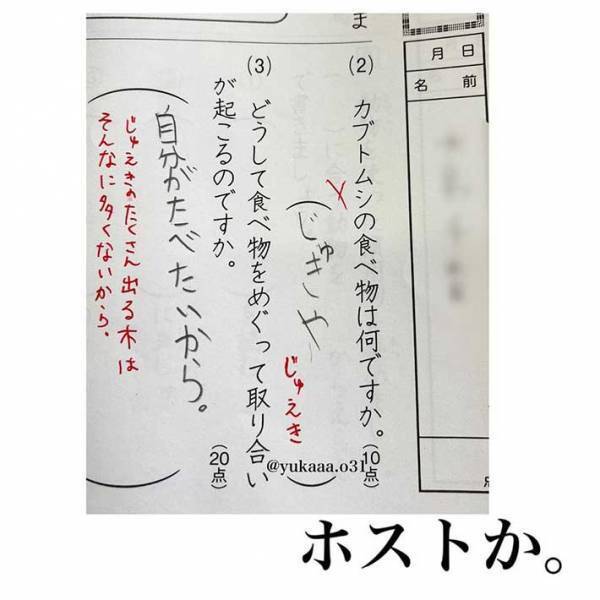 ま
月 日
名 前
(2) カブトムシの食べ物は何ですか。
(10点)
(じゅきや
じゅえき
(3) どうして食べ物をめぐって取り合い
が起こるのですか。
(20点)
自分がたべたいから。
じゅえきのたくさん出る木は
そんなに多くないから。
@yukaaa.o31
ホストか。